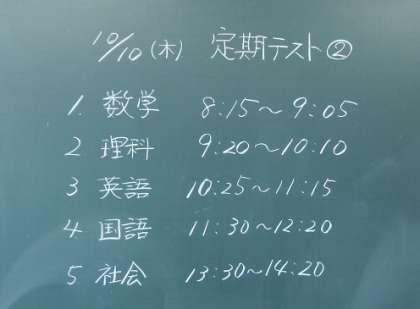 10/10(木) 定期テスト②
1. 数学 8:15~9:05
2 理科 9:20~10:10
3 英語 10:25~11:15
4. 国語 11:30~12:20
5 社会 13:30~14:20